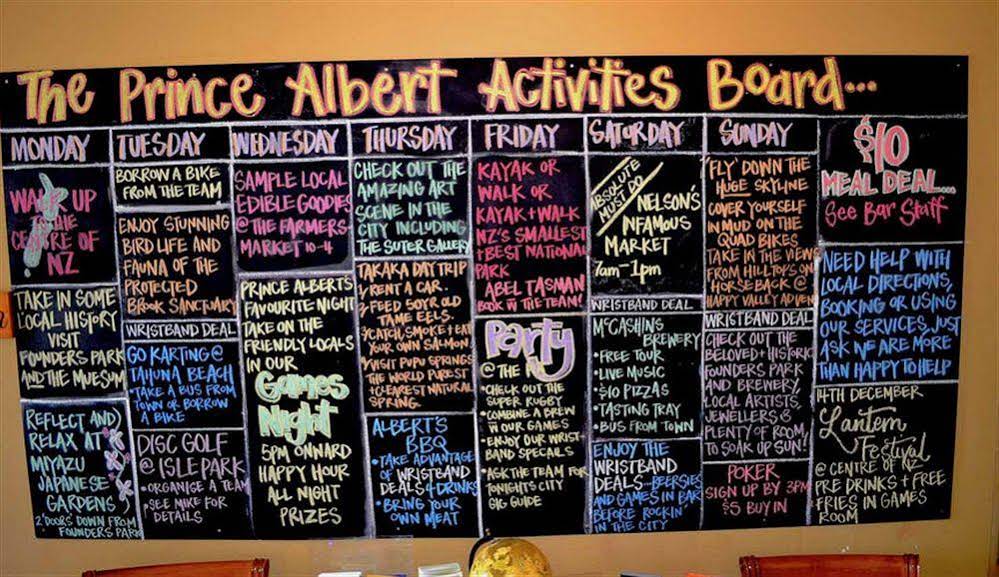 The Prince Albert Activities Board...
MONDAY
WALK UP
TO THE
CENTRE OF
NZ
TAKE IN SOME
LOCAL HISTORY
VISIT
FOUNDERS PARK
AND THE MUESUM
REFLECT AND
RELAX AT
MIYAZU
JAPANESE
GARDENS
2 DOORS DOWN FROM
FOUNDERS PARK
TUESDAY
BORROW A BIKE
FROM THE TEAM
ENJOY STUNNING
BIRD LIFE AND
FAUNA OF THE
PROTECTED
BROOK SANCTUARY
WRISTBAND DEAL
GO KARTING @
TAHUNA BEACH
• TAKE A BUS FROM
TOWN OR BORROW
A BIKE
DISC GOLF
@ ISLE PARK
• ORGANISE A TEAM
• SEE MIKE FOR
DETAILS
WEDNESDAY
SAMPLE LOCAL
EDIBLE GOODIES
@ THE FARMERS
MARKET 10-4
PRINCE ALBERTS
FAVOURITE NIGHT
TAKE ON THE
FRIENDLY LOCALS
IN OUR
Games
Night
5PM ONWARD
HAPPY HOUR
ALL NIGHT
PRIZES
THURSDAY
CHECK OUT THE
AMAZING ART
SCENE IN THE
CITY INCLUDING
THE SUTER GALLERY
TAKAKA DAY TRIP
1 RENT A CAR.
2 FEED 50YR OLD
TAME EELS.
3 CATCH, SMOKE + EAT
YOUR OWN SALMON
4 VISIT PUPU SPRINGS
THE WORLD PUREST
+ CLEAREST NATURAL
SPRING.
ALBERT'S
BBQ
• TAKE ADVANTAGE
OF WRISTBAND
DEALS 4 DRINKS
• BRING YOUR
OWN MEAT
FRIDAY
KAYAK OR
WALK OR
KAYAK + WALK
NZ'S SMALLEST
+ BEST NATIONAL
PARK
ABEL TASMAN
BOOK W THE TEAM!
Party
@ THE
• CHECK OUT THE
SUPER RUGBY
• COMBINE A BREW
W OUR GAMES
• ENJOY OUR WRIST-
BAND SPECALS
• ASK THE TEAM FOR
TONIGHTS CITY
GIG GUIDE
SATURDAY
ABSOLUTE
MUST DO
NELSON'S
INFAMOUS
MARKET
7am-1pm
WRISTBAND DEAL
McCASHINS
BREWERY
• FREE TOUR
• LIVE MUSIC
• $10 PIZZAS
• TASTING TRAY
• BUS FROM TOWN
ENJOY THE
WRISTBAND
DEALS - BEERSIES
AND GAMES IN BAR
BEFORE ROCKIN'
IN THE CITY
SUNDAY
'FLY' DOWN THE
HUGE SKYLINE
COVER YOURSELF
IN MUD ON THE
QUAD BIKES
TAKE IN THE VIEWS
FROM HILLTOPS ON
HORSEBACK @
HAPPY VALLEY ADVEN
WRISTBAND DEAL
CHECK OUT THE
BELOVED + HISTORIC
FOUNDERS PARK
AND BREWERY,
LOCAL ARTISTS,
JEWELLERS &
PLENTY OF ROOM
TO SOAK UP SUN!
POKER
SIGN UP BY 3PM
$5 BUY IN
$10
MEAL DEAL...
See Bar Staff
NEED HELP WITH
LOCAL DIRECTIONS,
BOOKING OR USING
OUR SERVICES, JUST
ASK WE ARE MORE
THAN HAPPY TO HELP
14TH DECEMBER
Lantern
Festival
@ CENTRE OF NZ
PRE DRINKS + FREE
FRIES IN GAMES
ROOM